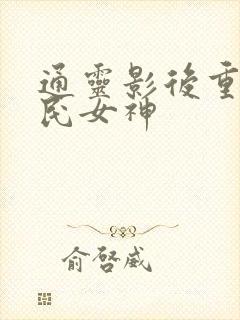 通靈影後重
民女神
俞啓威